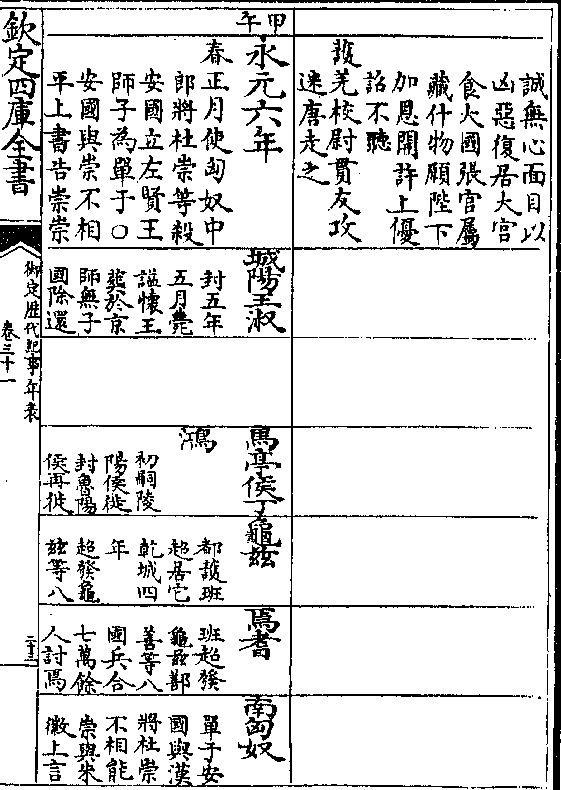 誠無心面目以
凶惡復居大官
食大國張官屬
藏什物願陛下
加恩開許上優
詔不聽
護羌校尉貫友攻
迷唐走之
甲午
永元六年
春正月使匈奴中
郎將杜崇等殺
安國立左賢王
師子為單于○
安國與崇不相
平上書告崇崇
城陽王淑
封五年
五月薨
諡懷王
葬於京
師無子
國除還
馬亭侯丁
鴻
初嗣陵
陽侯徙
封魯陽
侯再徙
龜玆
都護班
超居它
乾城四
年
超發龜
玆等八
焉耆
班超發
龜玆鄯
善等八
國兵合
七萬餘
人討焉
南匈奴
單于安
國與漢
將杜崇
不相能
崇與朱
徽上言
欽定四庫全書
御定歷代紀事年表
卷三十一
二十三